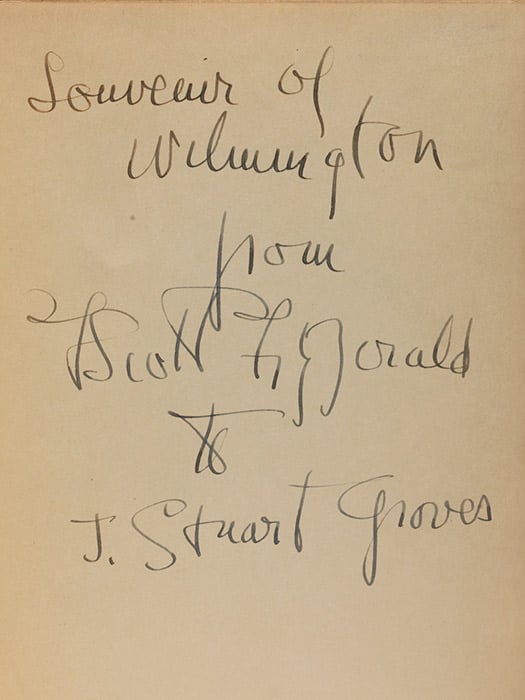 Souvenir of
Wilmington
from
FScott Fitzgerald
to
J. Stuart Groves